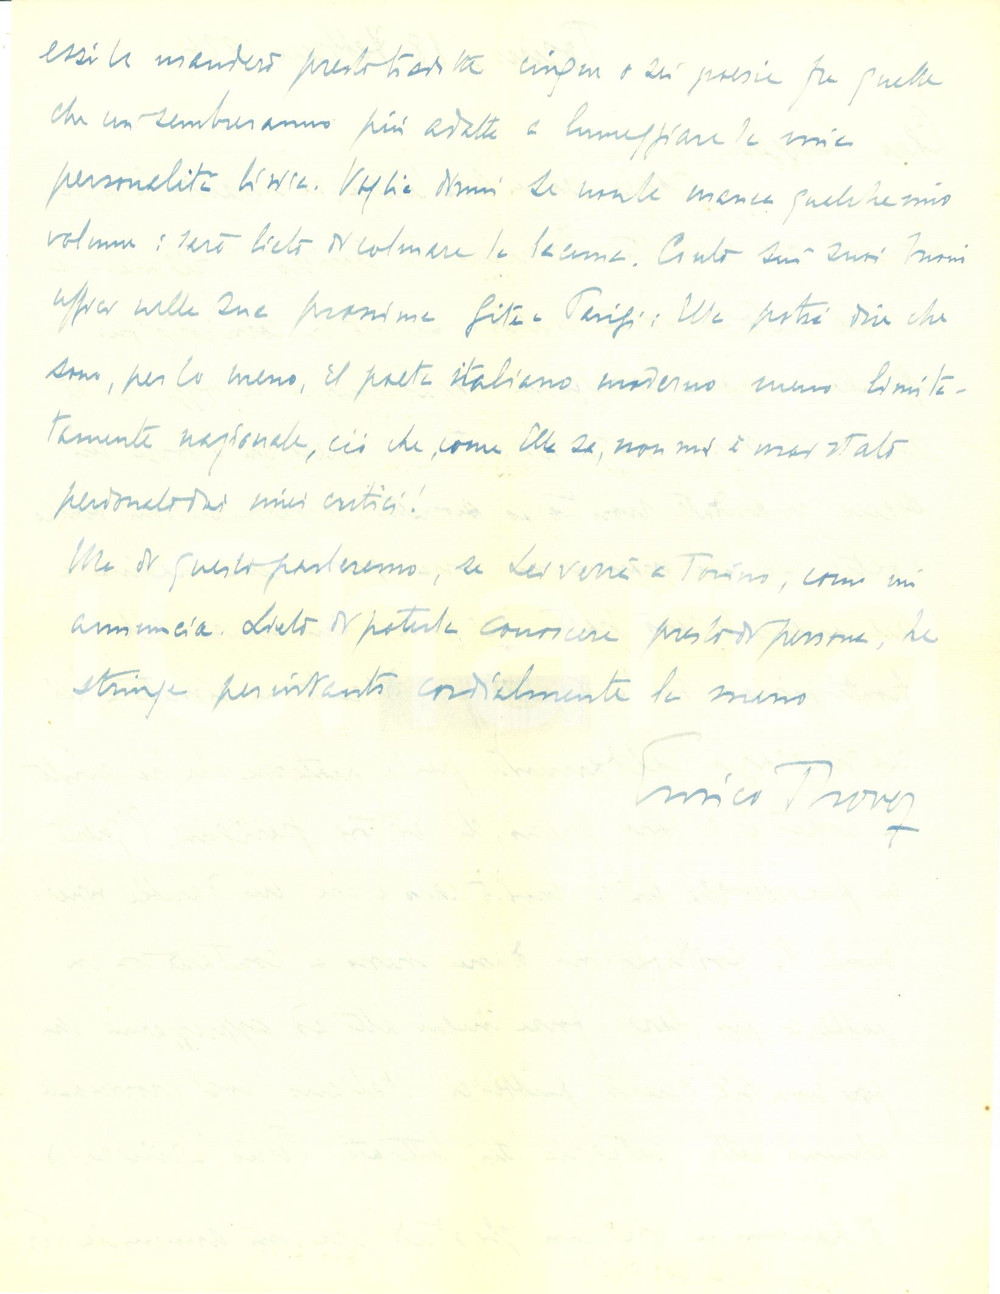 essi le manderò presto tradotte cinque o sei poesie fra quelle
che mi sembreranno più adatte a lumeggiare la mia
personalità lirica. Voglia dirmi se non le manca qualche mio
volume: sarò lieto di colmare la lacuna. Conto sui suoi buoni
uffici nella sua prossima gita a Parigi: Ella potrà dire che
sono, per lo meno, il poeta italiano moderno meno limita-
tamente nazionale, ciò che, come Ella sa, non mi è mai stato
perdonato dai miei critici!
Ma di questo parleremo, se Lei verrà a Torino, come mi
annuncia. Lieto di poterla conoscere presto di persona, le
stringe per intanto cordialmente la mano
Enrico Thovez